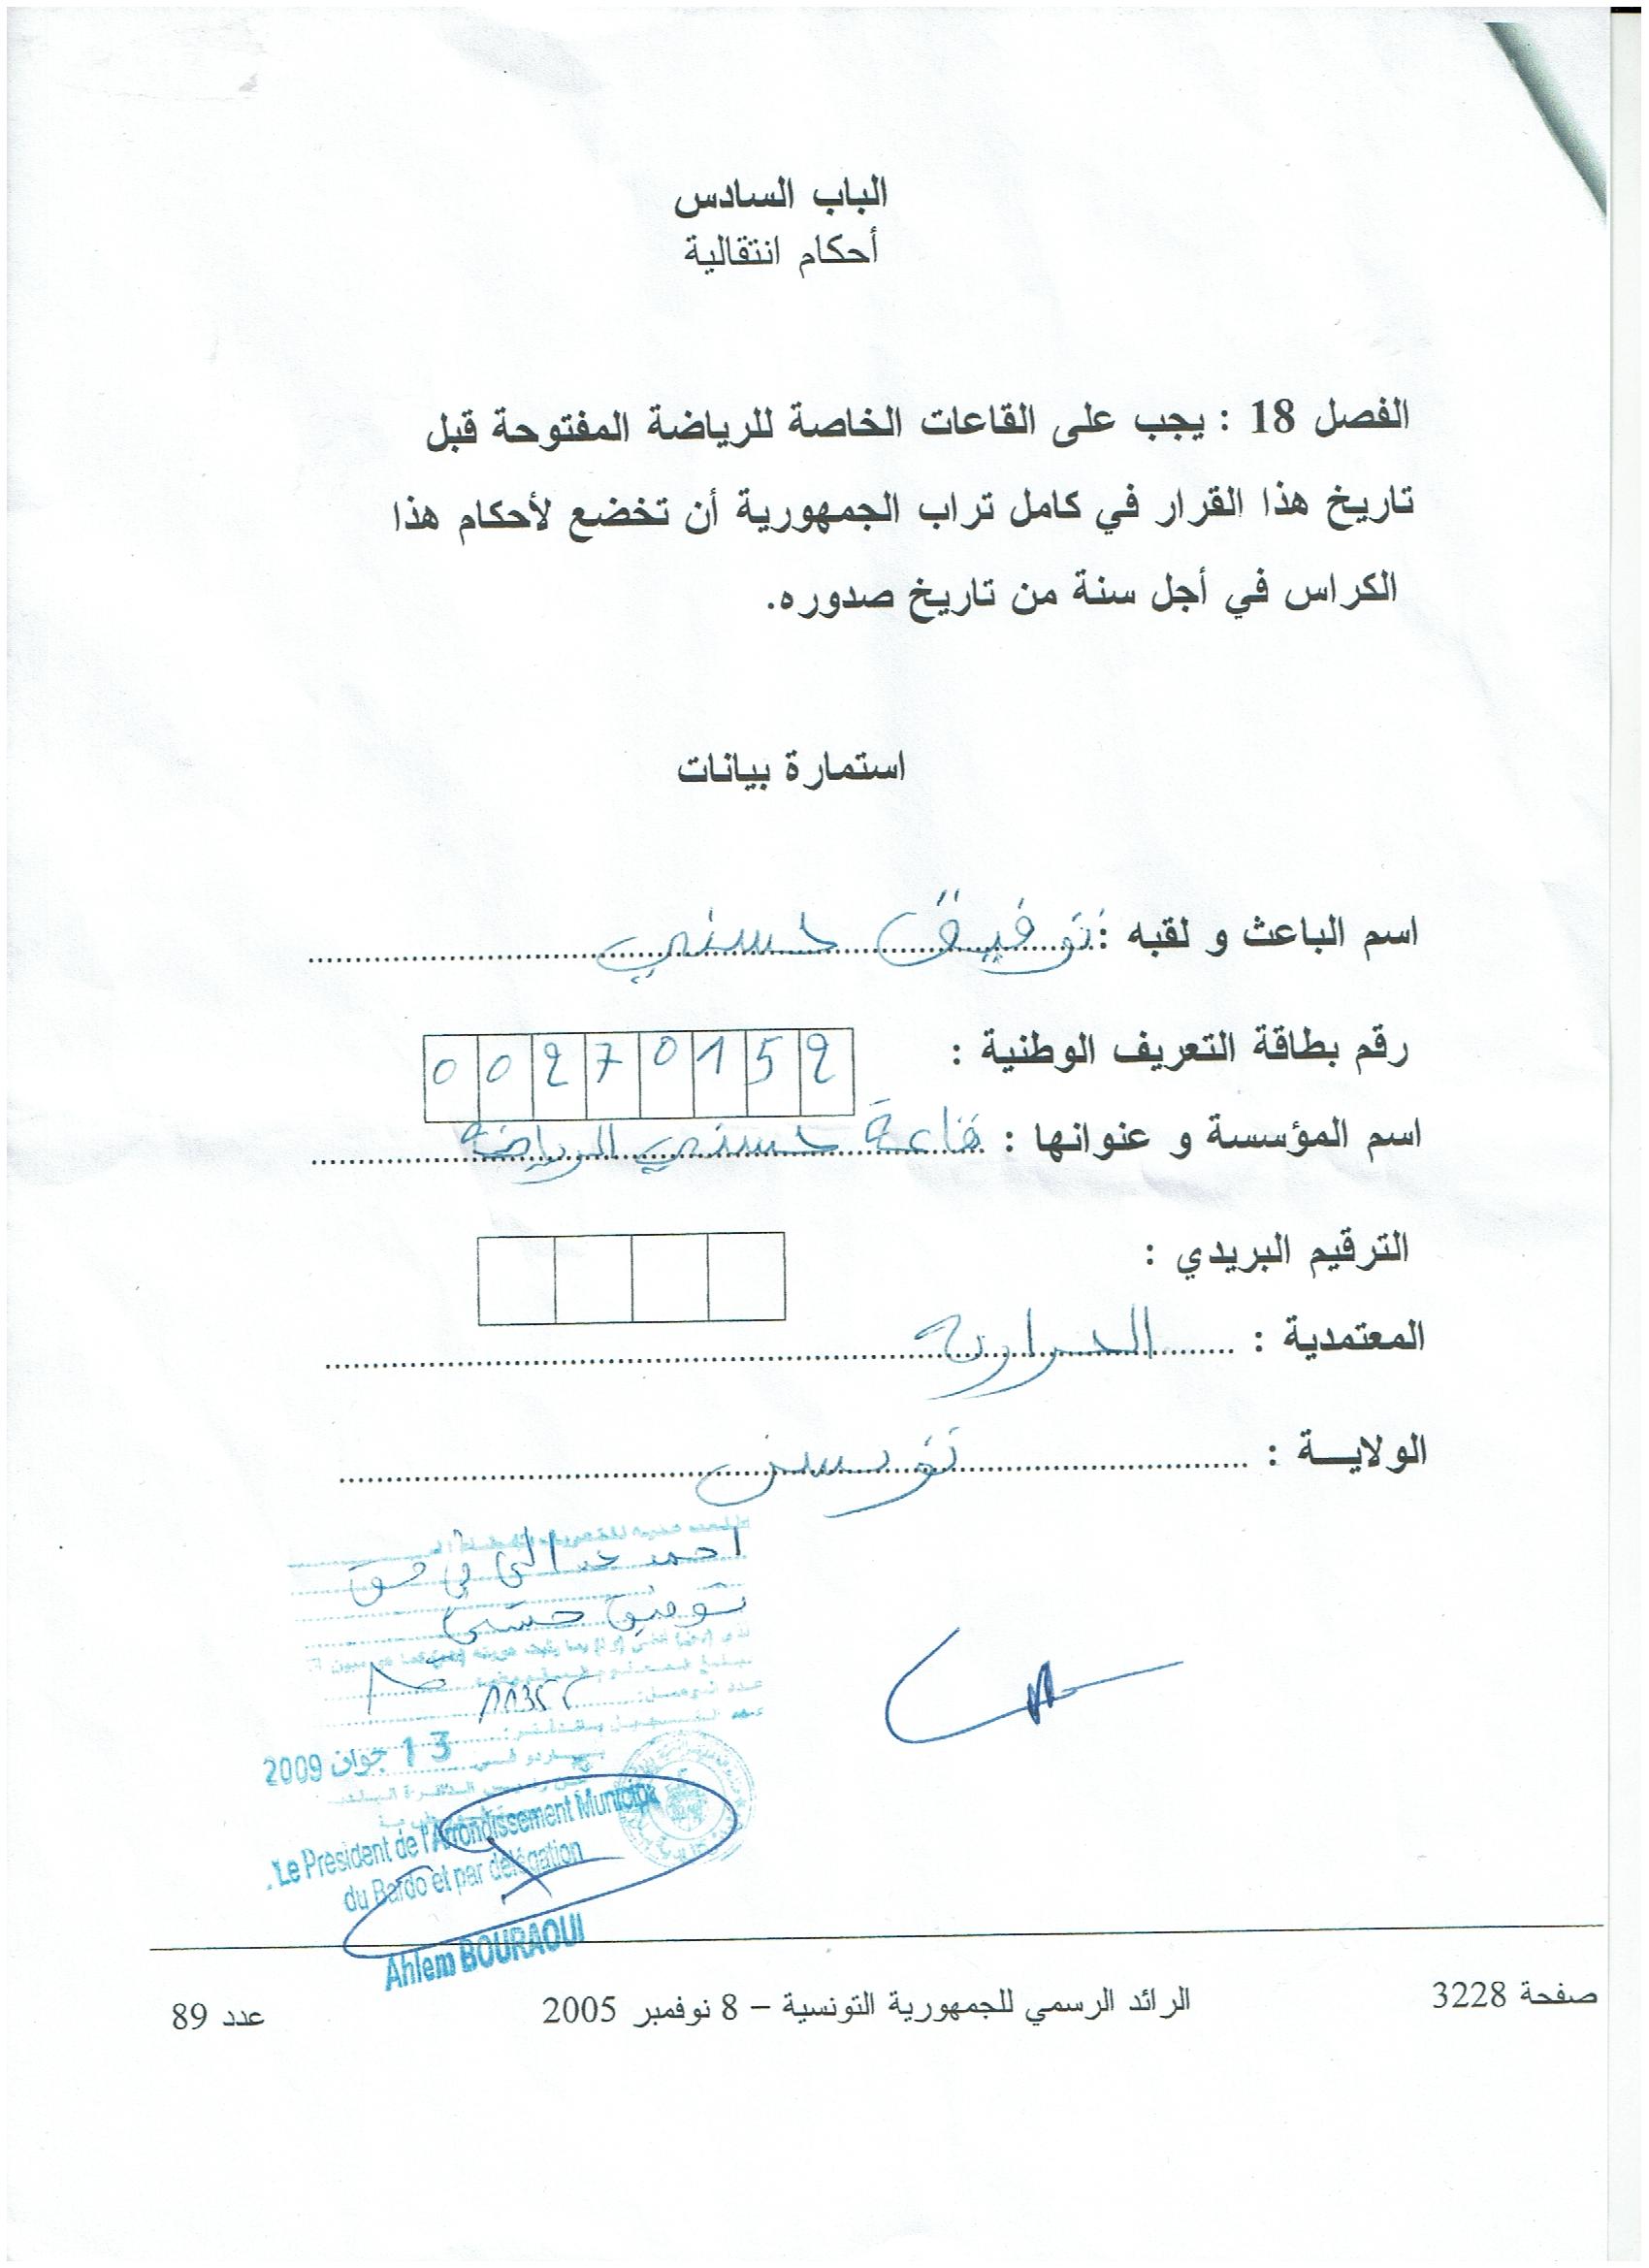 الباب السادس
أحكام انتقالية
الفصل 18 : يجب على القاعات الخاصة للرياضة المفتوحة قبل
تاريخ هذا القرار في كامل تراب الجمهورية أن تخضع لأحكام هذا
الكراس في أجل سنة من تاريخ صدوره.
استمارة بيانات
اسم الباعث و لقبه : توفيق حسني
رقم بطاقة التعريف الوطنية : 00270152
اسم المؤسسة و عنوانها : قاعة حسني الرياضة
الترقيم البريدي :
المعتمدية : الحرايرية
الولايـــة : تونس
توفيق حسني
13 جوان 2009
Le President de l'Arrondissement Municipal
du Bardo et par délégation
Ahlem BOURAOUI
صفحة 3228
الرائد الرسمي للجمهورية التونسية – 8 نوفمبر 2005
عدد 89